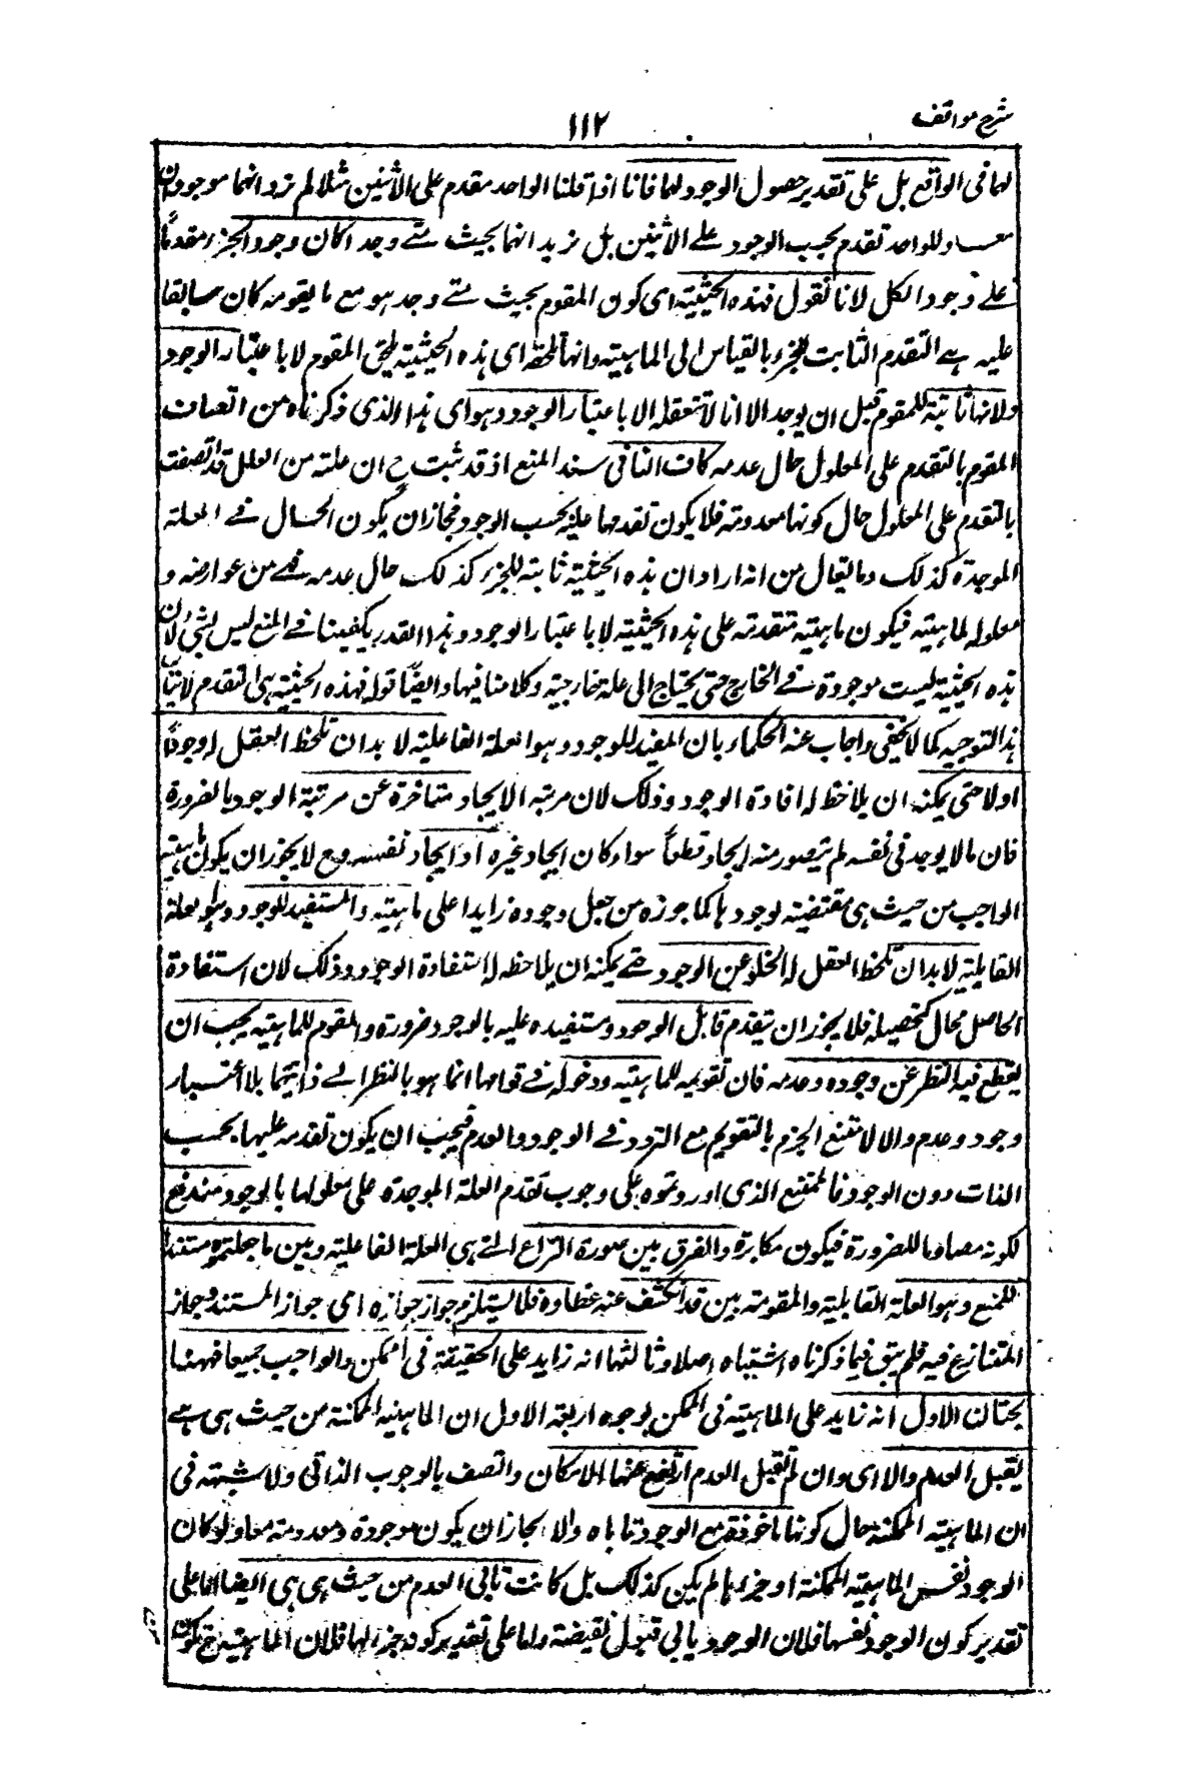 شرح مواقف
١١٢
لهما فى الواقع بل على تقدير حصول الوجود لهما فانا اذا قلنا الواحد مقدم على الاثنين مثلا لم نرد انهما موجودان
معا وللواحد تقدم بحسب الوجود على الاثنين بل نريد انهما بحيث متى وجدا كان وجود الجزء مقدما
على وجود الكل لانا نقول فهذه الحيثية اى كون المقوم بحيث متى وجد هو مع ما يقومه كان سابقا
عليه هى التقدم الثابت للجزء بالقياس الى الماهية وانها تلحقه اى هذه الحيثية تلحق المقوم لا باعتبار الوجود
ولانها ثابتة للمقوم قبل ان يوجد الا انا لا نتعقله الا باعتبار الوجود وهو اى هذا الذى ذكرناه من اتصاف
المقوم بالتقدم على المعلول حال عدمه كاف لنا فى سند المنع اذ قد ثبت ح ان علة من العلل قد اتصفت
بالتقدم على المعلول حال كونها معدومة فلا يكون تقدمها عليه بحسب الوجود فجاز ان يكون الحال فى العلة
الموجدة كذلك وما يقال من انه اراد ان هذه الحيثية ثابتة للجزء كذلك حال عدمه فهى من عوارضه و
معلولة لماهيته فيكون ماهيته متقدمة على هذه الحيثية لا باعتبار الوجود وهذا القدر يكفينا فى المنع ليس بشئ لان
هذه الحيثية ليست موجودة فى الخارج حتى يحتاج الى علة خارجية وكلامنا فيها وايضا قوله فهذه الحيثية هى التقدم لا يناسب
هذا التوجيه كما لا يخفى واجاب عنه الحكماء بان المفيد للوجود وهو العلة الفاعلية لا بد ان يلحظ العقل له وجودا
اولا حتى يمكنه ان يلاحظ له افادة الوجود وذلك لان مرتبة الايجاد متاخرة عن مرتبة الوجود بالضرورة
فان ما لا يوجد فى نفسه لم يتصور منه ايجاد قطعا سواء كان ايجاد غيره او ايجاد نفسه وح لا يجوز ان يكون ماهية
الواجب من حيث هى مقتضية لوجودها كما جوزه من جعل وجوده زايدا على ماهيته والمستفيد للوجود وهو العلة
القابلية لا بد ان يلحظ العقل له الخلو عن الوجود حتى يمكنه ان يلاحظ له استفادة الوجود وذلك لان استفادة
الحاصل محال كتحصيله فلا يجوز ان يتقدم قابل الوجود ومستفيده عليه بالوجود ضرورة والمقوم للماهية يجب ان
يقطع فيه النظر عن وجوده وعدمه فان تقويمه للماهية ودخوله فى قوامها انما هو بالنظر الى ذاتيهما بلا اعتبار
وجود وعدم والا لامتنع الجزم بالتقويم مع التردد فى الوجود والعدم فيجب ان يكون تقدمه عليها بحسب
الذات دون الوجود فالمنع الذى اوردتموه على وجوب تقدم العلة الموجدة على معلولها بالوجود مندفع
لكونه مصادما للضرورة فيكون مكابرة والفرق بين صورة النزاع التى هى العلة الفاعلية وبين ما جعلتموه مستندا
للمنع وهو العلة القابلية والمقومة بين قد انكشف عنه غطاؤه فلا يستلزم جواز جوازه اى جواز المستند وجواز
المتنازع فيه فلم يبق فيما ذكرناه اشتباه اصلا وثالثها انه زايد على الحقيقة فى الممكن والواجب جميعا فههنا
بحثان الاول انه زايد على الماهية فى الممكن لوجوه اربعة الاول ان الماهية الممكنة من حيث هى هى
يقبل العدم والا اى وان لم تقبل العدم ارتفع عنها الامكان واتصف بالوجوب الذاتى ولا شبهة فى
ان الماهية الممكنة حال كونها ماخوذة مع الوجود تاباه والا لجاز ان يكون موجودة ومعدومة معا ولو كان
الوجود نفس الماهية الممكنة او جزءها لم يكن كذلك بل كانت تابى العدم من حيث هى هى ايضا اما على
تقدير كون الوجود نفسها فلان الوجود يابى قبول نقيضه واما على تقدير كونه جزءا لها فلان الماهية ح تكون